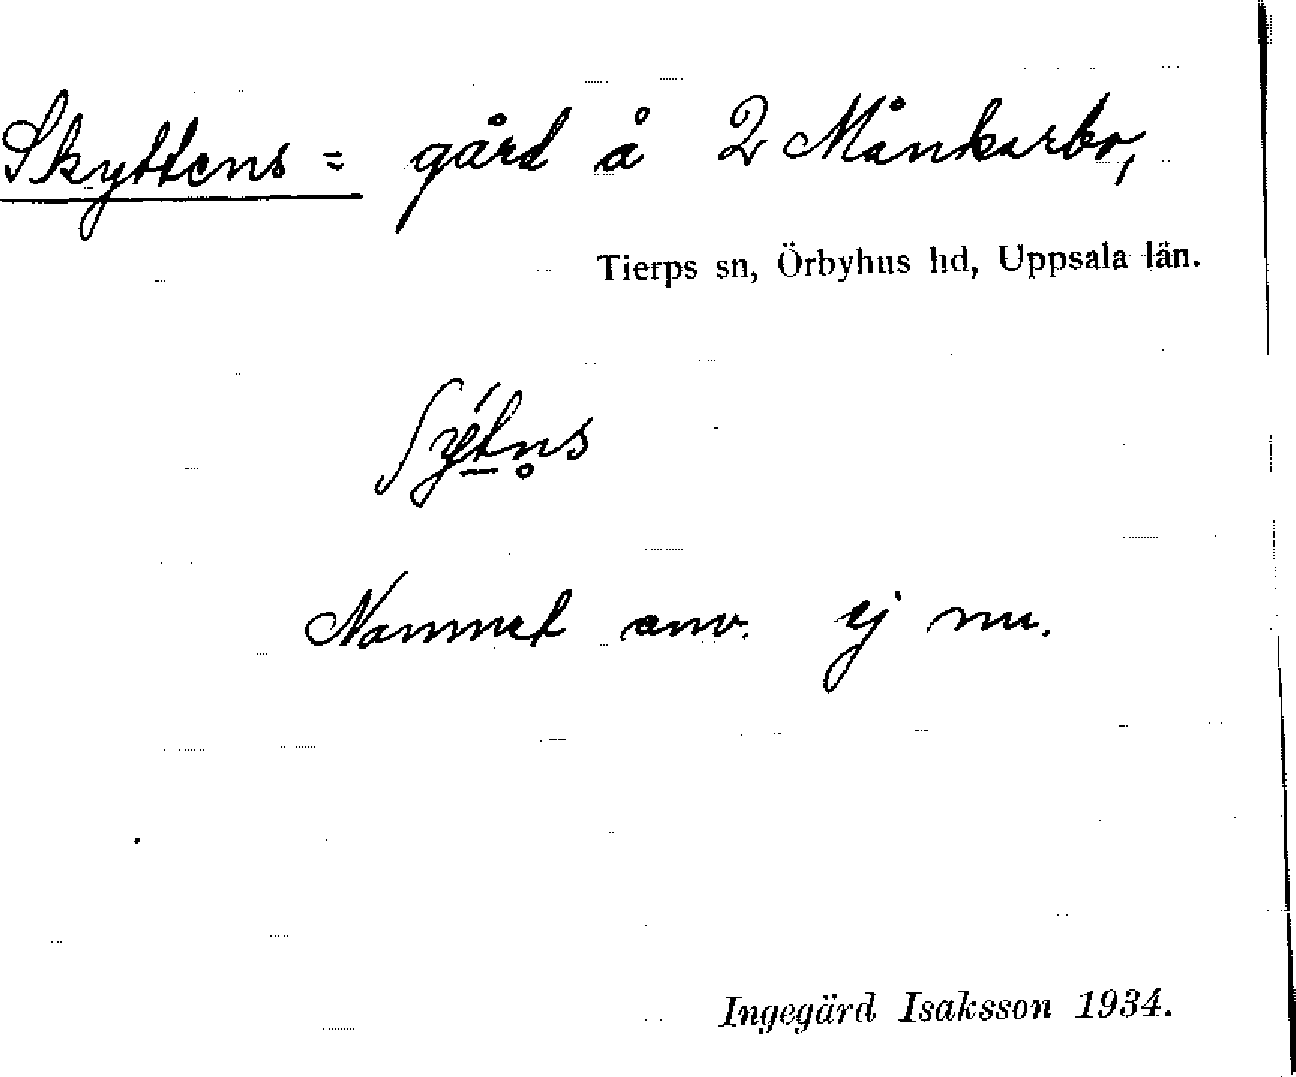 Skyttens = gård å 2 Månkarbo,
Tierps sn, Örbyhus hd, Uppsala län.
ʃýt̠n̥s
Namnet anv. ej nu.
Ingegärd Isaksson 1934.